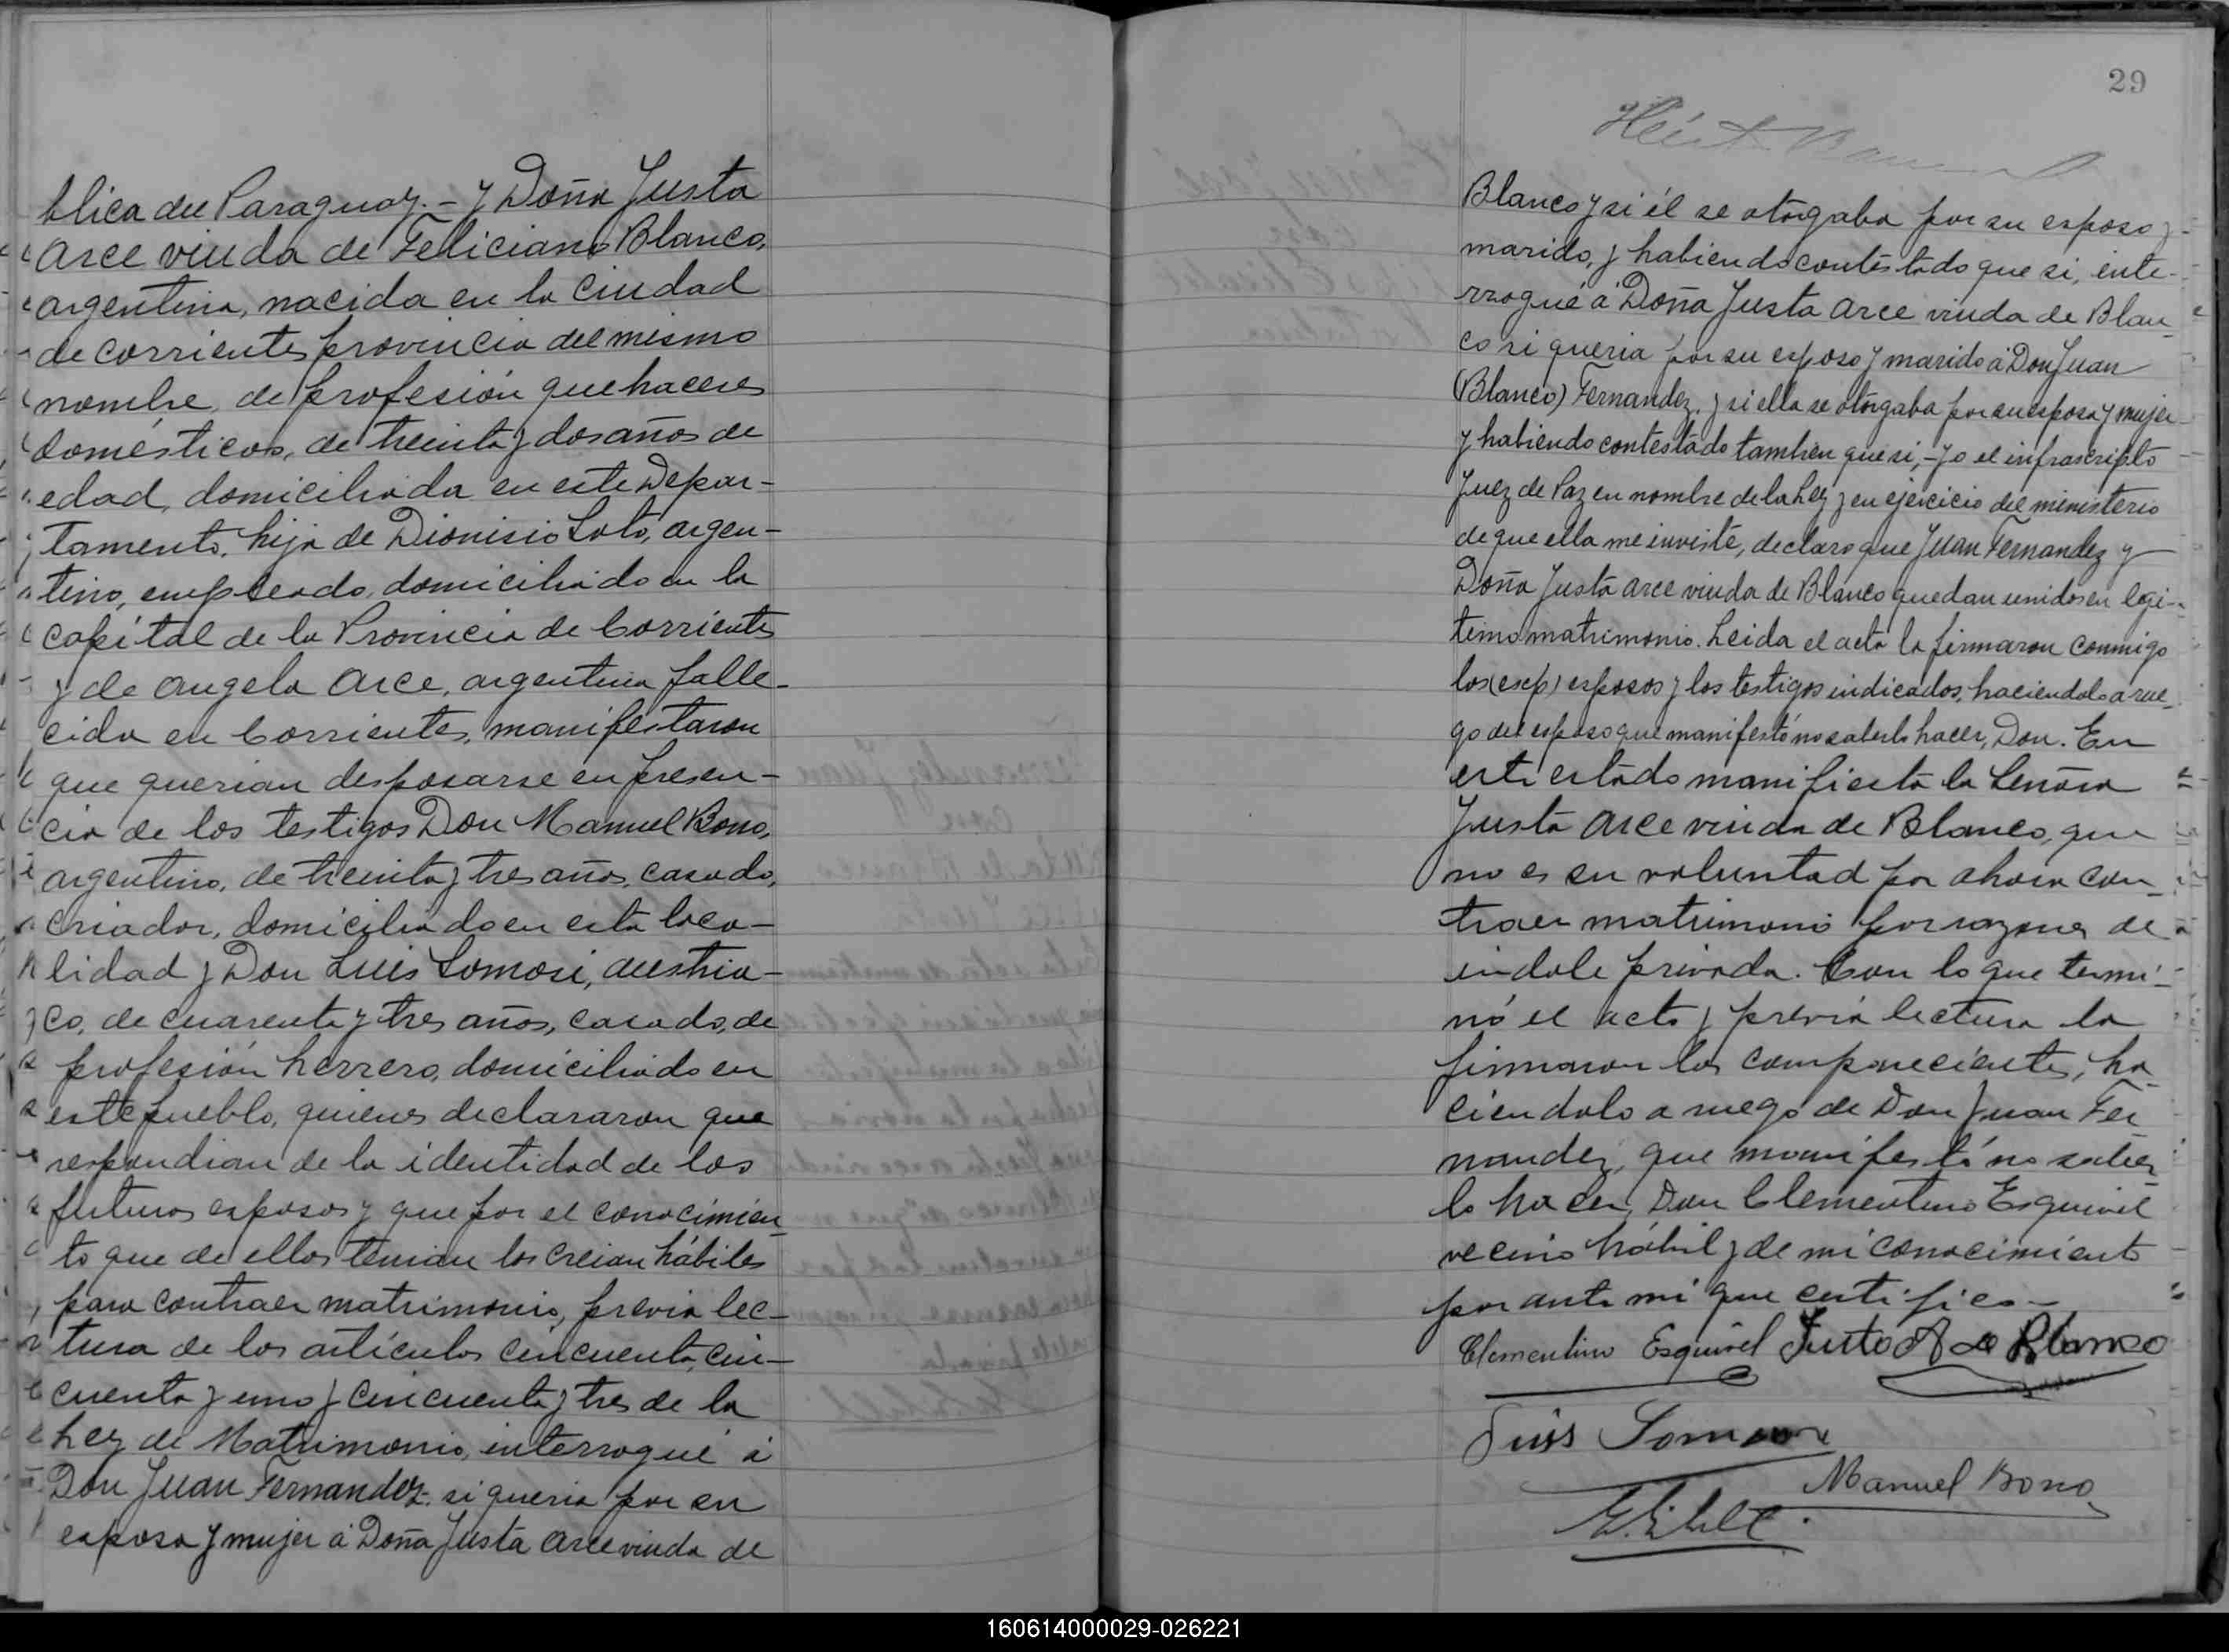 blica del Paraguay. – y Doña Justa
Arce viuda de Feliciano Blanco,
argentina, nacida en la Ciudad
de Corrientes provincia del mismo
nombre, de profesión quehaceres
domésticos, de treinta y dos años de
edad, domiciliada en este Depar-
tamento, hija de Dionisio Soto, argen-
tino, empleado, domiciliado en la
capital de la Provincia de Corrientes
y de Angela Arce, argentina falle-
cida en Corrientes, manifestaron
que querian desposarse en presen-
cia de los testigos Don Manuel Bono,
argentino, de treinta y tres años, casado,
criador, domiciliado en esta loca-
lidad y Don Luis Somosi, austria-
co, de cuarenta y tres años, casado, de
profesión herrero, domiciliado en
este pueblo, quienes declararon que
respondian de la identidad de los
futuros esposos y que por el conocimien-
to que de ellos tenian los creian hábiles
para contraer matrimonio, previa lec-
tura de los artículos cincuenta, cin-
cuenta y uno y cincuenta y tres de la
Ley de Matrimonio, interrogué á
Don Juan Fernandez si queria por su
esposa y mujer á Doña Justa Arce viuda de
29
Blanco y si él se otorgaba por su esposo y
marido, y habiendo contestado que si, inte-
rrogué á Doña Justa Arce viuda de Blan-
co si queria por su esposo y marido á Don Juan
(Blanco) Fernandez, y si ella se otorgaba por su esposa y mujer
y habiendo contestado tambien que si, – Yo el infrascripto
Juez de Paz en nombre de la Ley y en ejercicio del ministerio
de que ella me inviste, declaro que Juan Fernandez y
Doña Justa Arce viuda de Blanco quedan unidos en legi-
timo matrimonio. Leida el acta la firmaron conmigo
los (esp) esposos y los testigos indicados, haciendolo a rue-
go del esposo que manifestó no saberlo hacer, Don. En
este estado manifiesta la Señora
Justa Arce viuda de Blanco, que
no es su voluntad por ahora con-
traer matrimonio por razones de
indole privada. Con lo que termi-
nó el acto y previa lectura la
firmaron los comparecientes, ha-
ciendolo a ruego de Don Juan Fer-
nandez, que manifestó no saber-
lo hacer, Don Clementino Esquivel
vecino hábil y de mi conocimiento
por ante mi que certifico –
Clementino Esquivel Justa A de Blanco
Luis
Manuel Bono
160614000029-026221